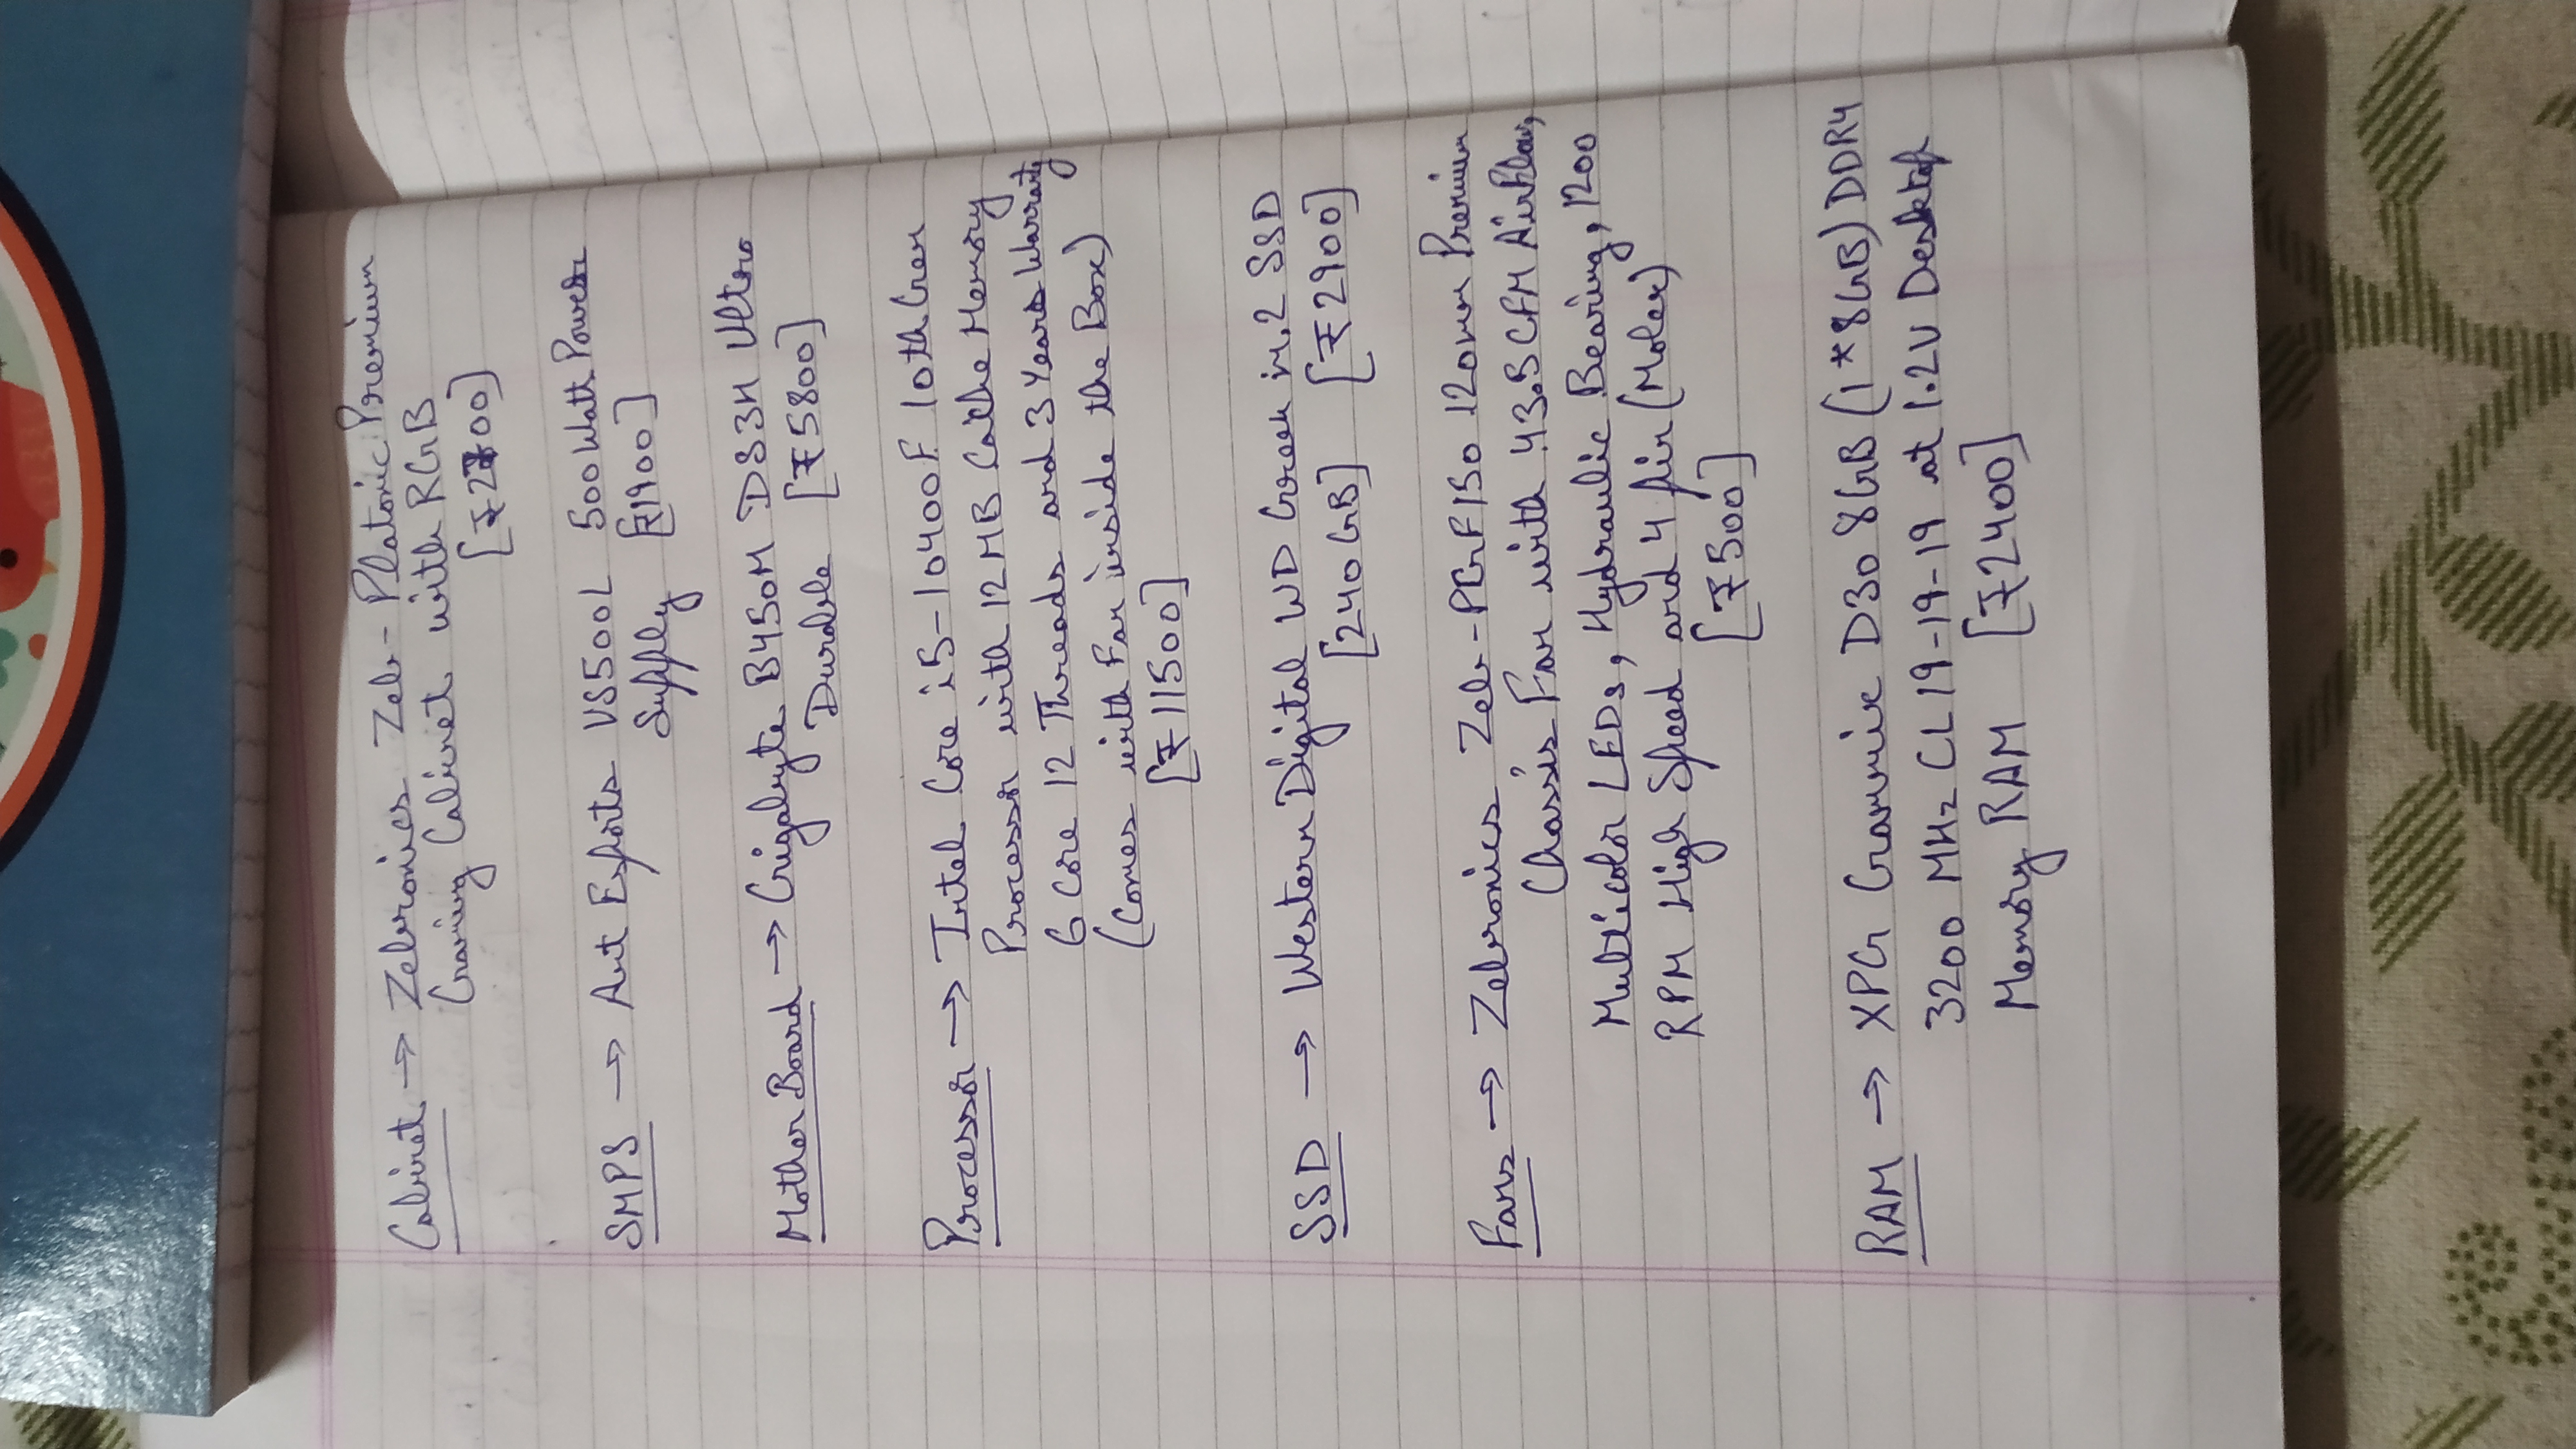 Cabinet → Zebronics Zeb-Platonic Premium
Gaming Cabinet with RGB
SMPS → Ant Esports VS500L 500 Watt Power
Supply [₹1900]
Mother Board → Gigabyte B450M DS3H Ultra
Durable [₹5800]
Processor → Intel Core i5-10400F 10th Gen
Processor with 12MB Cache Memory
6 Core 12 Threads and 3 Years Warranty
(Comes with Fan inside the Box)
[₹11500]
SSD → Western Digital WD Green m.2 SSD
[240GB] [₹2900]
Fans → Zebronics Zeb-PGF150 120mm Premium
Chassis Fan with 43.5CFM Airflow,
Multicolor LEDs, Hydraulic Bearing, 1200
RPM High Speed and 4 pin (Molex)
[₹500]
RAM → XPG Gammix D30 8GB (1*8GB) DDR4
3200 MHz CL 19-19-19 at 1.2V Desktop
Memory RAM [₹2400]